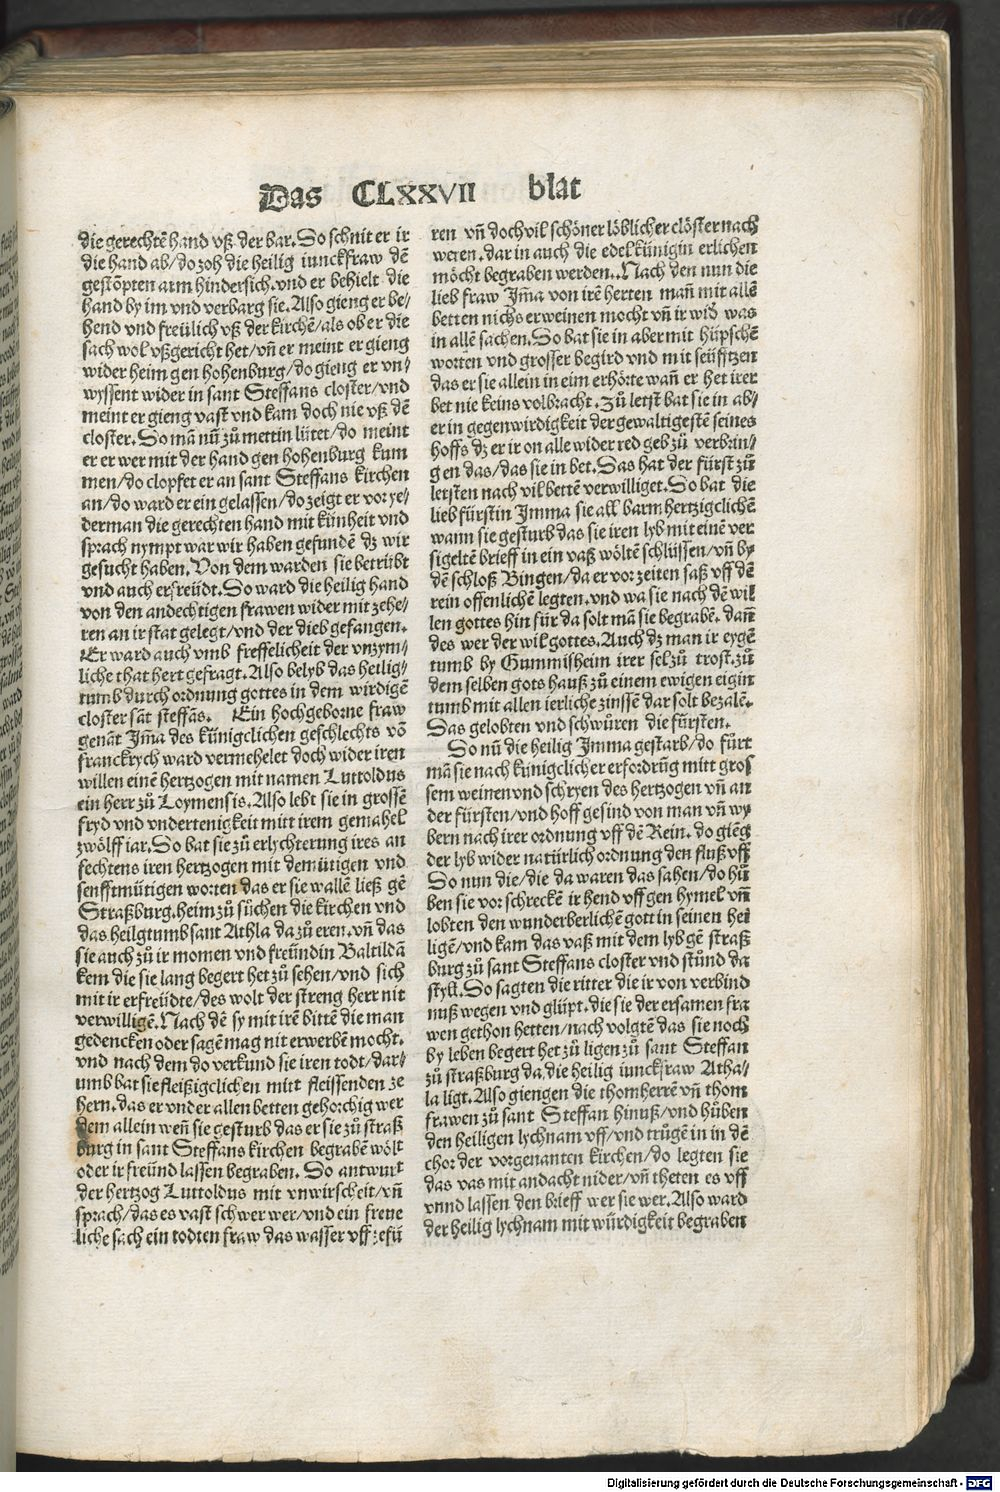 Das CLXXVII blat
die gerechtē hand vß der bar. So schnit er ir
die hand ab/do zoh die heilig iunckfraw dē
gestōpten arm hindersich. vnd er behielt die
hand by im vnd verbarg sie. Also gieng er be-
hend vnd freülich vß der kirchē/als ob er die
sach wol vßgericht het/vñ er meint er gieng
wider heim gen hohenburg/do gieng er vn/
wyssent wider in sant Steffans closter/vnd
meint er gieng vast vnd kam doch nie vß dē
closter. So mā nū zů mettin lütet/do meint
er er wer mit der hand gen hohenburg kum
men/do clopfet er an sant Steffans kirchen
an/do ward er ein gelassen/do zeigt er vor ye/
derman die gerechten hand mit künheit vnd
sprach nympt war wir haben gefundē dz wir
gesucht haben. Von dem warden sie betrübt
vnd auch erfreüdt. So ward die heilig hand
von den andechtigen frawen wider mit zehe/
ren an ir stat gelegt/vnd der dieb gefangen.
Er ward auch vmb freffelicheit der vnzym/
liche that hert gefragt. Also belyb das heilig/
tumb durch ordnung gottes in dem wirdigē
closter sāt steffās. Ein hochgeborne fraw
genāt Im̄a des künigclichen geschlechts vō
franckrych ward vermehelet doch wider iren
willen einē hertzogen mit namen Luttoldus
ein herr zů Loymensis. Also lebt sie in grossē
fryd vnd vndertenigkeit mitt irem gemahel
zwölff iar. So bat sie zů erlychterung ires an
fechtens iren hertzogen mit demütigen vnd
senfftmütigen worten das er sie wallē ließ gē
Straßburg. heim zů süchen die kirchen vnd
das heilgtumb sant Athla da zů eren. vñ das
sie auch zů ir momen vnd freündin Baltildā
kem die sie lang begert het zů sehen/vnd sich
mit ir erfreüdte/des wolt der streng herr nit
verwilligē. Nach dē sy mit irē bittē die man
gedencken oder sagē mag nit erwerbē mocht.
vnd nach dem do verkund sie iren todt/dar/
umb bat sie fleißigclichen mitt fleissenden ze
hern. das er vnder allen betten gehorchig wer
dem allein weñ sie gesturb das er sie zů straß
burg in sant Steffans kirchen begrabē wölt
oder ir freünd lassen begraben. So antwurt
der hertzog Luttoldus mit vnwirscheit/vñ
sprach/das es vast schwer wer/vnd ein freue
liche sach ein todten fraw das wasser vff zefü
ren vñ doch vil schöner löblicher clöster nach
weren. dar in auch die edel künigin erlichen
möcht begraben werden. Nach den nun die
lieb fraw Im̄a von irē herten mañ mit allē
betten nichs erweinen mocht vñ ir wid was
in allē sachen. So bat sie in aber mit hüpschē
worten vnd grosser begird vnd mit seüfftzen
das er sie allein in eim erhörte wañ er het irer
bet nie keins volbracht. Zů letst bat sie in ab/
er in gegenwirdigkeit der gewaltigestē seines
hoffs dz er ir on alle wider red geb zů verbrin/
gen das/das sie in bet. Das hat der fürst zů
letsten nach vil bettē verwilliget. So bat die
lieb fürstin Imma sie all barmhertzigclichē
wann sie gesturb das sie iren lyb mit einē ver
sigeltē brieff in ein vaß wöltē schlüssen/vñ by
dē schloß Bingen/da er vor zeiten saß vff dē
rein offenlichē legten. vnd wa sie nach dē wil
len gottes hin für da solt mā sie begrabē. dañ
des wer der wil gottes. Auch dz man ir eygē
tumb by Gummisheim irer selzů trost. zů
dem selben gots hauß zů einem ewigen eigin
tumb mit allen ierliche zinssē dar solt bezalē.
Das gelobten vnd schwůren die fürsten.
So nū die heilig Imma gestarb/do fürt
mā sie nach künigclicher erfordrūg mitt gros
sem weinen vnd schryen des hertzogen vñ an
der fürsten/vnd hoff gesind von man vñ wy
bern nach irer ordnung vff dē Rein. do giēg
der lyb wider natürlich ordnung den fluß vff
So nun die/die da waren das sahen/do hů
ben sie vor schreckē ir hend vff gen hymel vñ
lobten den wunderberlichē gott in seinen hei
ligē/vnd kam das vaß mit dem lyb gē straß
burg zů sant Steffans closter vnd stůnd da
styll. So sagten die ritter die ir von verbind
nuß wegen vnd glüpt. die sie der ersamen fra
wen gethon hetten/nach volgtē das sie noch
by leben begert het zů ligen zů sant Steffan
zů straßburg da die heilig iunckfraw Atha/
la ligt. Also giengen die thomherrē vñ thom
frawen zů sant Steffan hinuß/vnd hůben
den heiligen lychnam vff/vnd trůgē in in dē
chor der vorgenanten kirchen/do legten sie
das vas mit andacht nider/vñ theten es vff
vnnd lassen den brieff wer sie wer. Also ward
der heilig lychnam mit würdigkeit begraben
Digitalisierung gefördert durch die Deutsche Forschungsgemeinschaft - DFG